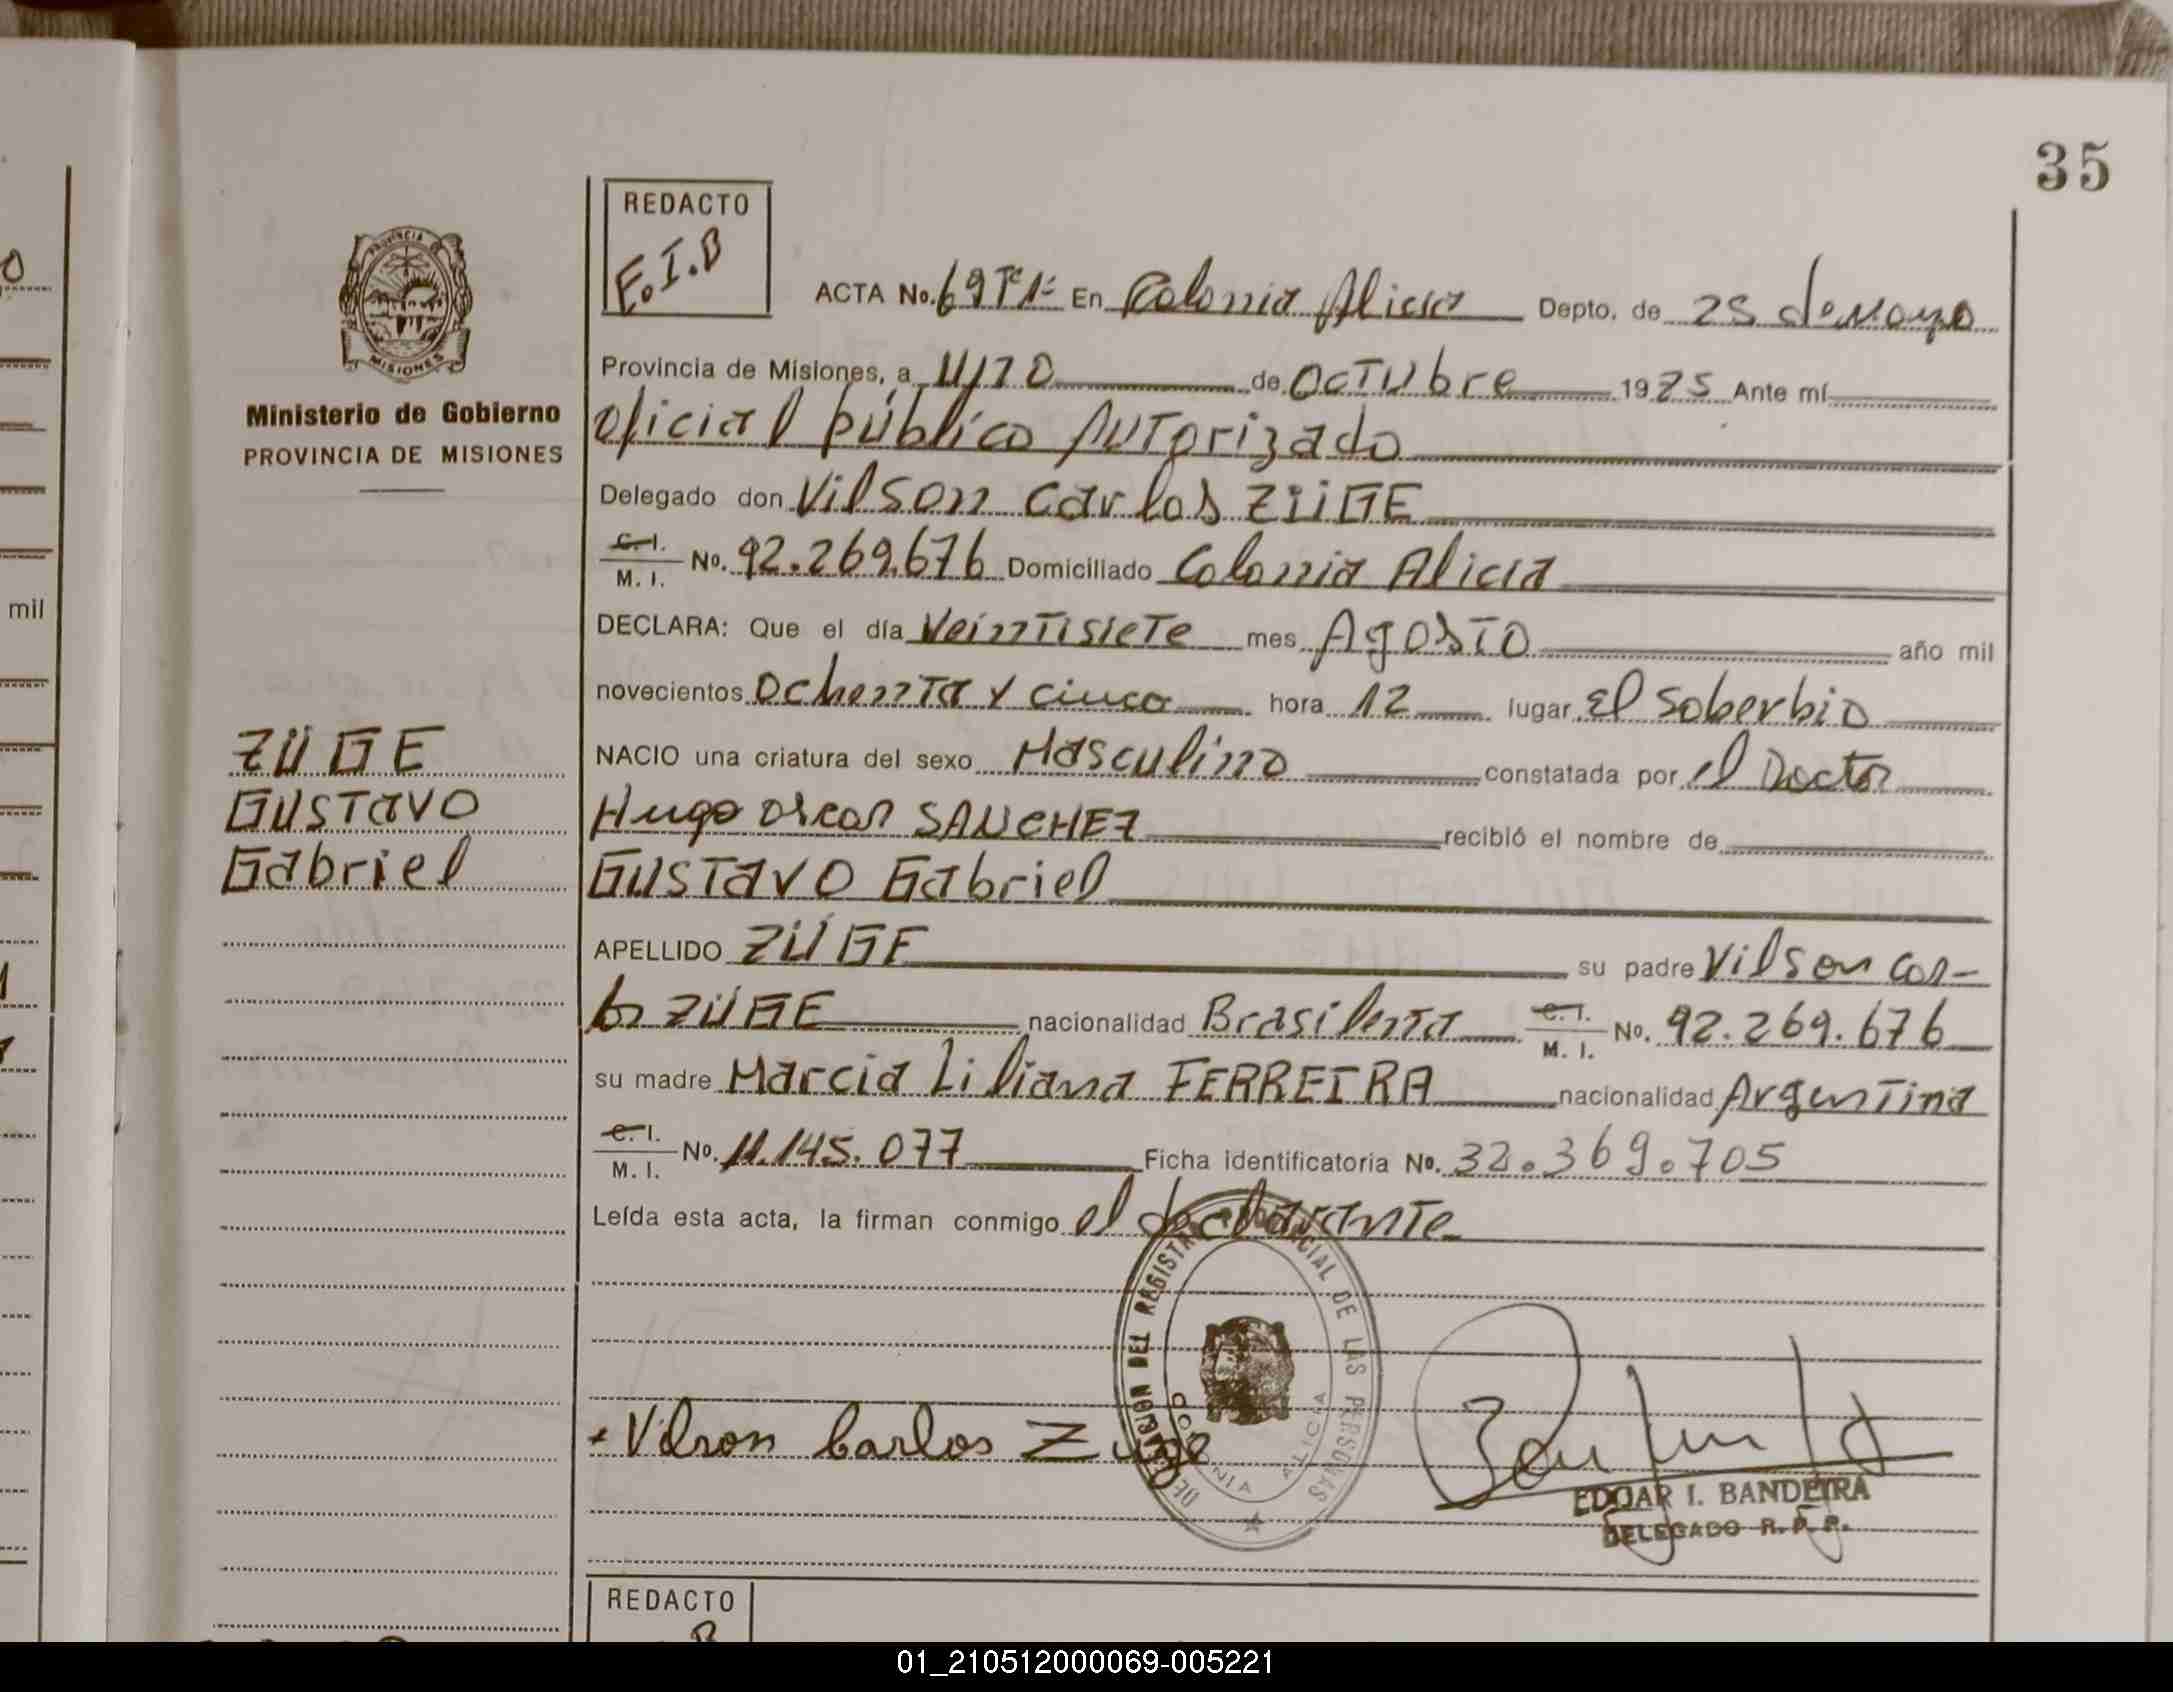 35
REDACTO
E.I.B
ACTA No. 69 Tº1º En Colonia Alicia Depto. de 25 de Mayo
Provincia de Misiones, a de Octubre 1985 Ante mí
Oficial público Autorizado
Delegado don Vilson Carlos ZÜGE
C. I.
M. I. No. 92.269.676 Domiciliado Colonia Alicia
DECLARA: Que el día Veintisiete mes Agosto año mil
novecientos Ochenta y cinco hora 12 lugar El Soberbio
NACIO una criatura del sexo Masculino constatada por el Doctor
Hugo Oscar SANCHEZ recibió el nombre de
GUSTAVO Gabriel
APELLIDO ZÜGE su padre Vilson Car-
los ZÜGE nacionalidad Brasilena C. I.
M. I. No. 92.269.676
su madre Marcia Liliana FERREIRA nacionalidad Argentina
C. I.
M. I. No. 11.145.077 Ficha identificatoria No. 32.369.705
Leída esta acta, la firman conmigo el declarante
Vilson Carlos Zuge
DELEGACION DEL REGISTRO PROVINCIAL DE LAS PERSONAS
COLONIA ALICIA
EDGAR I. BANDEIRA
DELEGADO R. P. P.
PROVINCIA DE
MISIONES
Ministerio de Gobierno
PROVINCIA DE MISIONES
ZÜGE
GUSTAVO
Gabriel
mil
REDACTO
01_210512000069-005221